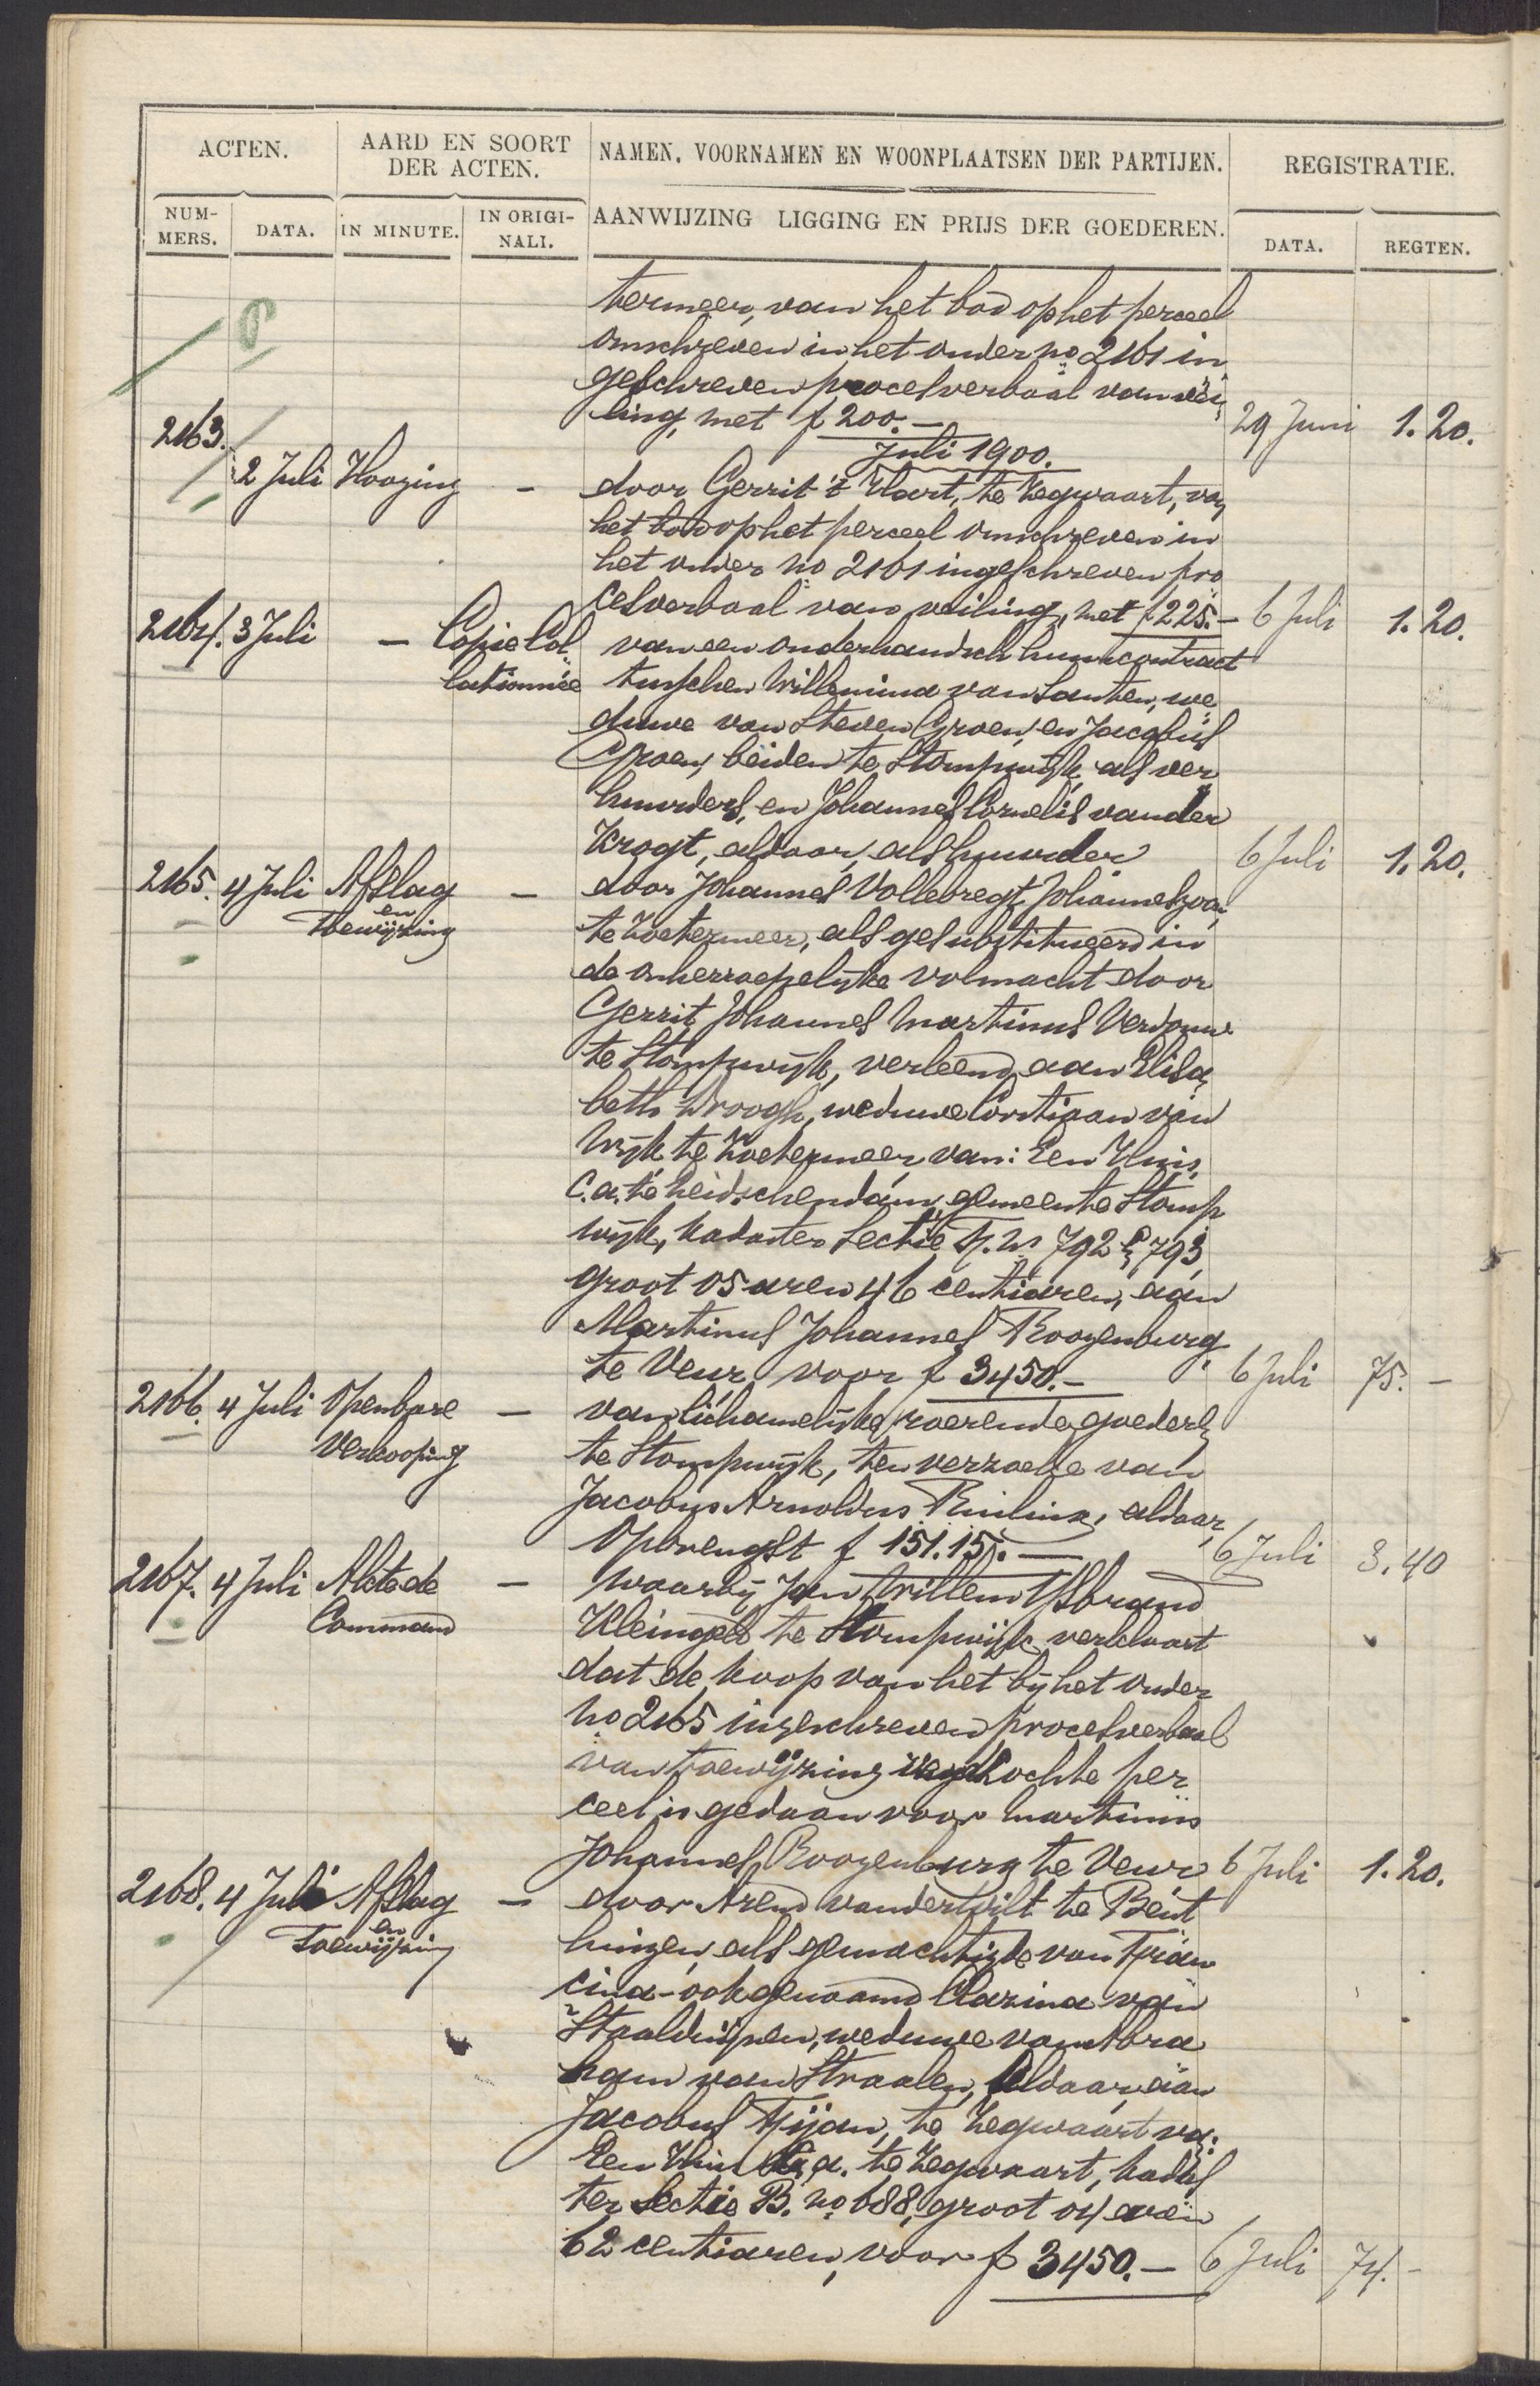 ACTEN.
AARD EN SOORT DER ACTEN.
NAMEN, VOORNAMEN EN WOONPLAATSEN DER PARTIJEN.
REGISTRATIE.
NUM-MERS.
DATA.
IN MINUTE.
IN ORIGI-NALI.
AANWIJZING LIGGING EN PRIJS DER GOEDEREN.
DATA.
REGTEN.
termeer, van het bod op het perceel
omschreven in het onder no 2161 in
geschreven procesverbaal van vei
ling, met f 200.- 29 Juni 1.20.
Juli 1900.
2163. 2 Juli Hooging - door Gerrit 't Hart, te Zegwaart, van
het bod op het perceel omschreven in
het onder no 2161 ingeschreven pro
cesverbaal van veiling, met f 225.- 6 Juli 1.20.
2164. 3 Juli - Copie Col van een onderhandsch huurcontract
lationnée tusschen Willemina van Santen, we
duwe van Steven Groen, en Jacobus
Groen, beiden te Stompwijk, als ver
huurders, en Johannes Cornelis van der
Krogt, aldaar, als huurder 6 Juli 1.20.
2165. 4 Juli Afslag - door Johannes Vollebregt Johanneszoon,
en
Toewijzing te Zoetermeer, als gesubstitueerd in
de onherroepelijke volmacht door
Gerrit Johannes Martinus Verdouw
te Stompwijk, verleend aan Elisa
beth Droogh, weduwe Corstiaan van
Wijk te Zoetermeer, van: Een Huis,
c.a. te Leidschendam, gemeente Stomp
wijk, kadaster Sectie F. no 792 & 793,
groot 05 aren 46 centiaren, aan
Martinus Johannes Roozenburg
te Veur, voor f 3450.- 6 Juli 75.-
2166. 4 Juli Openbare - van lichamelijke roerende goederen
Verkooping te Stompwijk, ten verzoeke van
Jacobus Arnoldus , aldaar,
Opbrengst f 151.15.- 6 Juli 3.40
2167. 4 Juli Akte de - waarbij Jan Willem IJsbrand
Command te Stompwijk verklaart
dat de koop van het bij het onder
no 2165 ingeschreven procesverbaal
van toewijzing verkochte per
ceel is gedaan voor Martinus
Johannes Roozenburg te Veur 6 Juli 1.20.
2168. 4 Juli Afslag - door Arend van der Wilt te Bent
en
Toewijzing huizen, als gemachtigde van Fran
cina - ook genaamd Clazina van
Staalduijnen, weduwe van Abra
ham van Straalen, aldaar, aan
Jacobus Fijan, te Zegwaart van:
Een Huis c.a. te Zegwaart, kadas
ter Sectie B. no 688, groot 04 aren
62 centiaren, voor f 3450.- 6 Juli 74.-